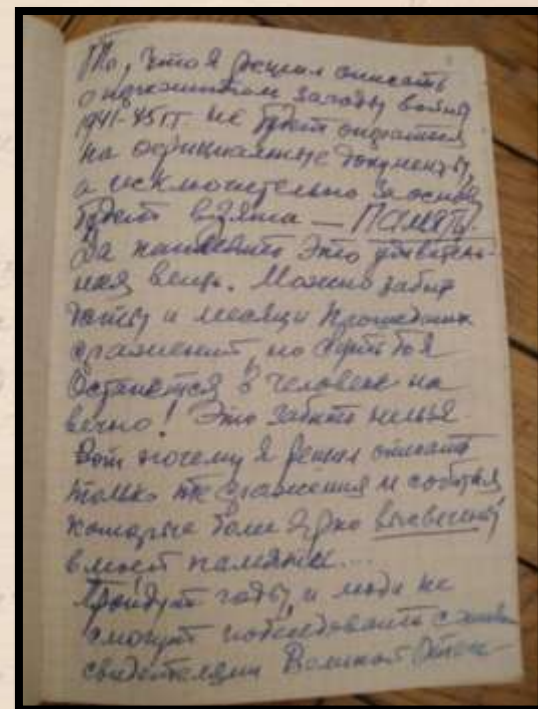 То, что я решил описать
о пережитом за годы войны
1941-45 гг. не будет опираться
на официальные документы,
а исключительно за основу
будет взята — ПАМЯТЬ.
Да память это удивитель-
ная вещь. Можно забыть
даты и месяцы прошедших
сражений, но суть боя
останется в человеке на
вечно! Это забыть нельзя.
Вот почему я решил описать
только те сражения и события
которые более ярко высвечены
в моей памяти...
Пройдут годы, и люди не
смогут побеседовать с живыми
свидетелями Великой Отече-